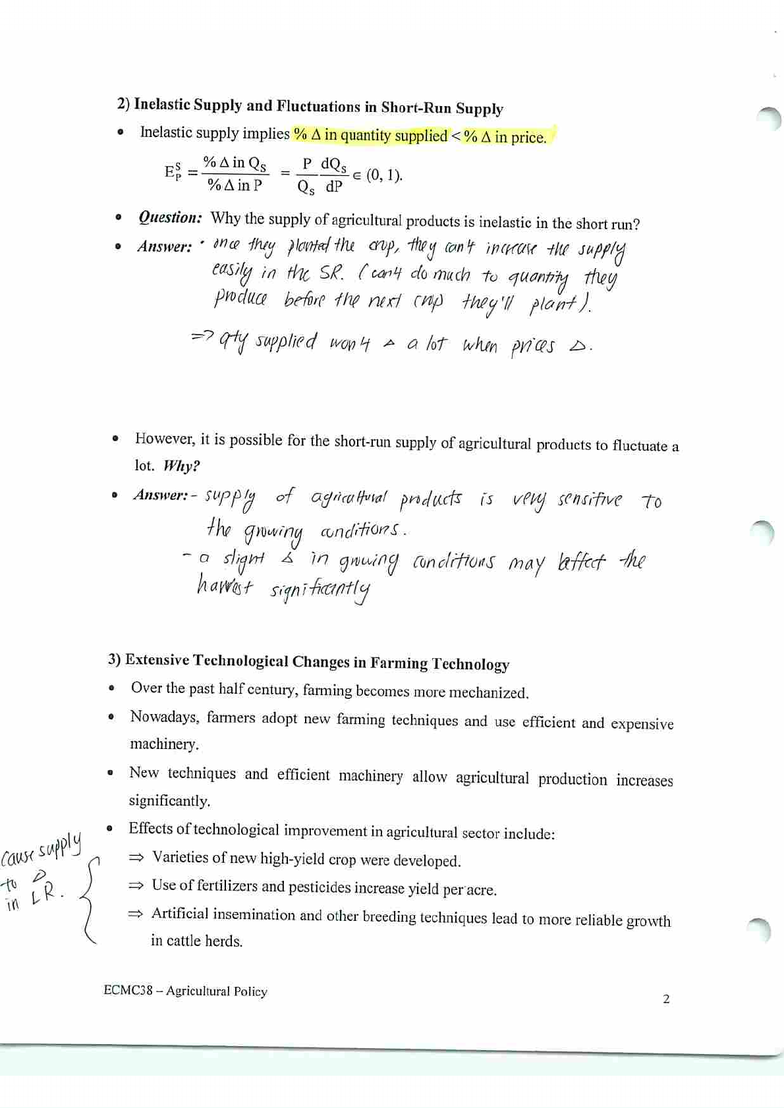 2) Inelastic Supply and Fluctuations in Short-Run Supply
• Inelastic supply implies % Δ in quantity supplied < % Δ in price.
E^S_P = % Δ in Q_S / % Δ in P = P/Q_S dQ_S/dP ∈ (0, 1).
• Question: Why the supply of agricultural products is inelastic in the short run?
• Answer: • once they planted the crop, they can't increase the supply
easily in the SR. (can't do much to quantity they
produce before the next crop they'll plant).
=> qty supplied won't Δ a lot when prices Δ.
• However, it is possible for the short-run supply of agricultural products to fluctuate a
lot. Why?
• Answer: - supply of agricultural products is very sensitive to
the growing conditions.
- a slight Δ in growing conditions may affect the
harvest significantly
3) Extensive Technological Changes in Farming Technology
• Over the past half century, farming becomes more mechanized.
• Nowadays, farmers adopt new farming techniques and use efficient and expensive
machinery.
• New techniques and efficient machinery allow agricultural production increases
significantly.
• Effects of technological improvement in agricultural sector include:
⇒ Varieties of new high-yield crop were developed.
⇒ Use of fertilizers and pesticides increase yield per acre.
⇒ Artificial insemination and other breeding techniques lead to more reliable growth
in cattle herds.
cause supply
to Δ
in LR.
ECMC38 – Agricultural Policy
2